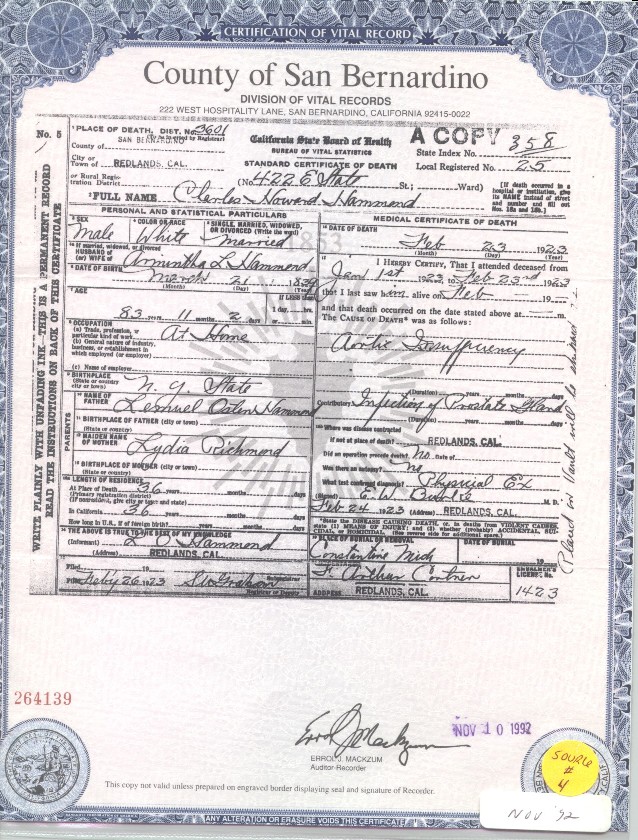 CERTIFICATION OF VITAL RECORD
County of San Bernardino
DIVISION OF VITAL RECORDS
222 WEST HOSPITALITY LANE, SAN BERNARDINO, CALIFORNIA 92415-0022
No. 5
WRITE PLAINLY WITH UNFADING INK—THIS IS A PERMANENT RECORD
READ THE INSTRUCTIONS ON BACK OF THIS CERTIFICATE
PLACE OF DEATH, DIST. No. 3601
County of SAN BERNARDINO
City or Town of REDLANDS, CAL.
or Rural Registration District
California State Board of Health
BUREAU OF VITAL STATISTICS
STANDARD CERTIFICATE OF DEATH
A COPY 358
State Index No.
Local Registered No. 25
(No. 422 E State St.; Ward)
[If death occurred in a hospital or institution, give its NAME instead of street and number and fill out Nos. 18a and 18b.]
FULL NAME Charles Howard Hammond
PERSONAL AND STATISTICAL PARTICULARS
SEX Male
COLOR OR RACE White
SINGLE, MARRIED, WIDOWED, OR DIVORCED (Write the word) Married
If married, widowed, or divorced
HUSBAND of (or) WIFE of Armintha L Hammond
DATE OF BIRTH March 21
(Month) (Day) (Year)
AGE 83 years 11 months 2 days
OCCUPATION
(a) Trade, profession, or particular kind of work At Home
(b) General nature of industry, business, or establishment in which employed (or employer)
(c) Name of employer
BIRTHPLACE (State or country) (city or town) N. Y. State
PARENTS
NAME OF FATHER Lemuel Hammond
BIRTHPLACE OF FATHER (city or town)
(State or country)
MAIDEN NAME OF MOTHER Lydia Richmond
BIRTHPLACE OF MOTHER (city or town)
(State or country)
LENGTH OF RESIDENCE
At Place of Death 36 years months days
(Primary registration district)
(If nonresident, give city or town and state)
In California 36 years months days
How long in U.S., if of foreign birth? years months days
THE ABOVE IS TRUE TO THE BEST OF MY KNOWLEDGE
(Informant) Hammond
(Address) REDLANDS, CAL.
Filed 19
Filed Feby 26 1923 Graham
Registrar or Deputy
MEDICAL CERTIFICATE OF DEATH
DATE OF DEATH Feb 23 1923
(Month) (Day) (Year)
I HEREBY CERTIFY, That I attended deceased from
Jan 1st 1923, to Feb 23rd 1923
that I last saw him alive on Feb 19
and that death occurred on the date stated above at m.
The CAUSE OF DEATH* was as follows:
Aortic Insufficiency
(Duration) years months days
Contributory Infection of Prostate Gland
(Duration) years months days
Where was disease contracted
if not at place of death? REDLANDS, CAL.
Did an operation precede death? No Date of
Was there an autopsy? No
What test confirmed diagnosis? Physical Ex
(Signed) E. W. M. D.
Feb 24 1923 (Address) REDLANDS, CAL.
*State the DISEASE CAUSING DEATH, or, in deaths from VIOLENT CAUSES, state (1) MEANS OF INJURY; and (2) whether (probably) ACCIDENTAL, SUICIDAL, or HOMICIDAL. (See reverse side for additional space.)
PLACE OF BURIAL OR REMOVAL Constantine Mich
DATE OF BURIAL 19
F. Arthur Cortner
ADDRESS REDLANDS, CAL.
EMBALMER'S LICENSE No. 1423
(Placed in Vault will be
264139
Errol J Mackzum
ERROL J. MACKZUM
Auditor-Recorder
NOV 10 1992
This copy not valid unless prepared on engraved border displaying seal and signature of Recorder.
SOURCE
#
4
NOV '92
ANY ALTERATION OR ERASURE VOIDS THIS CERTIFICATE